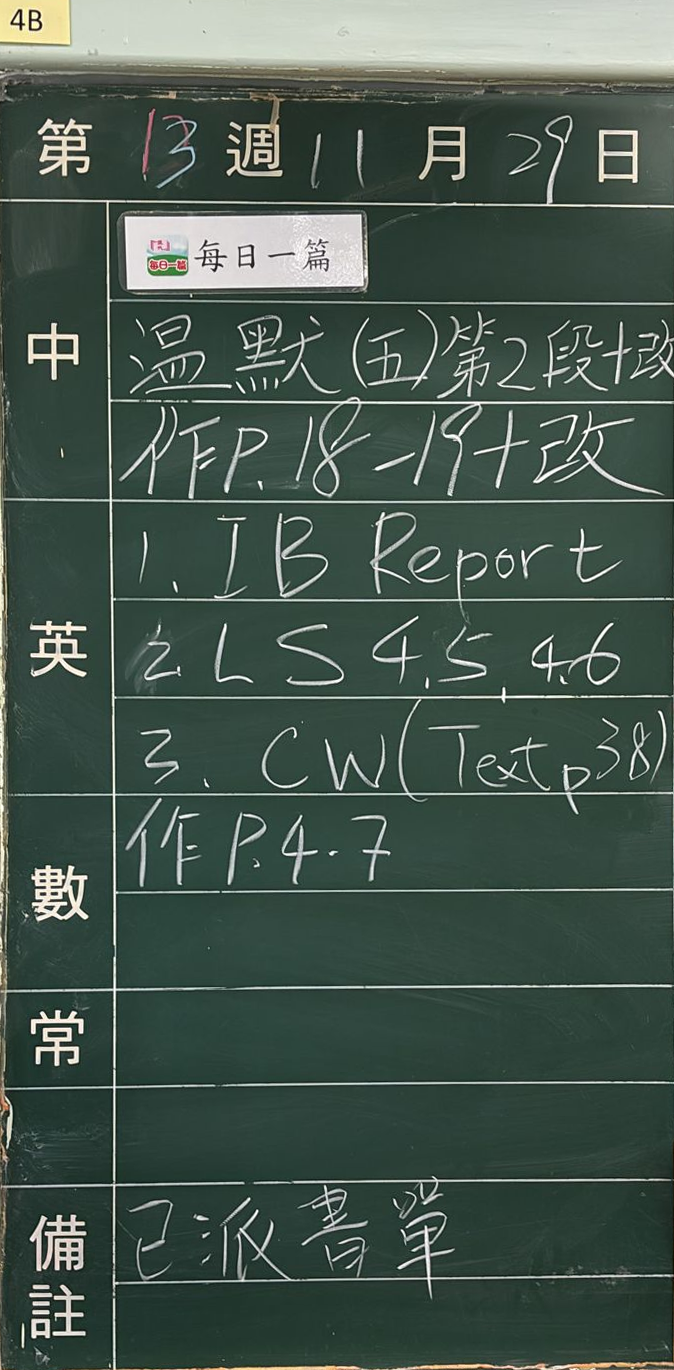 4B
第 13 週 11 月 29 日
中
每日一篇 每日一篇
温默(五)第2段+改
作P.18-19+改
英
1. IB Report
2. LS 4.5, 4.6
3. CW(Text p38)
數
作P.4-7
常
備註
已派書單